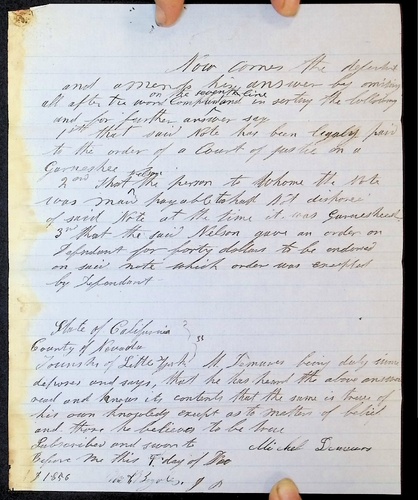 Now comes the defendant
and amends his answer by omiting
on the seventh line
all after the word Complaint and in serting the following
and for further answer say
1st that said Note has been legaly paid
to the order of a Court of justice on a
Garnashee
2nd That the person to Whome the Note
was made payable to had not dispose
of said Note at the time it was Garnesheed
3rd That the said Nelson gave an order on
Defendant for forty dollars to be endorsed
on said note which order was excepted
by Defendant
State of California
County of Nevada } ss
Township of Little York M. being duly sworn
deposes and says, that he has heard the above answer
read and knows its contents that the same is true of
his own knogledg exept as to matters of belief
and those he believes to be true
Subscribed and sworn to Michel
Before Me this day of
1856 J P